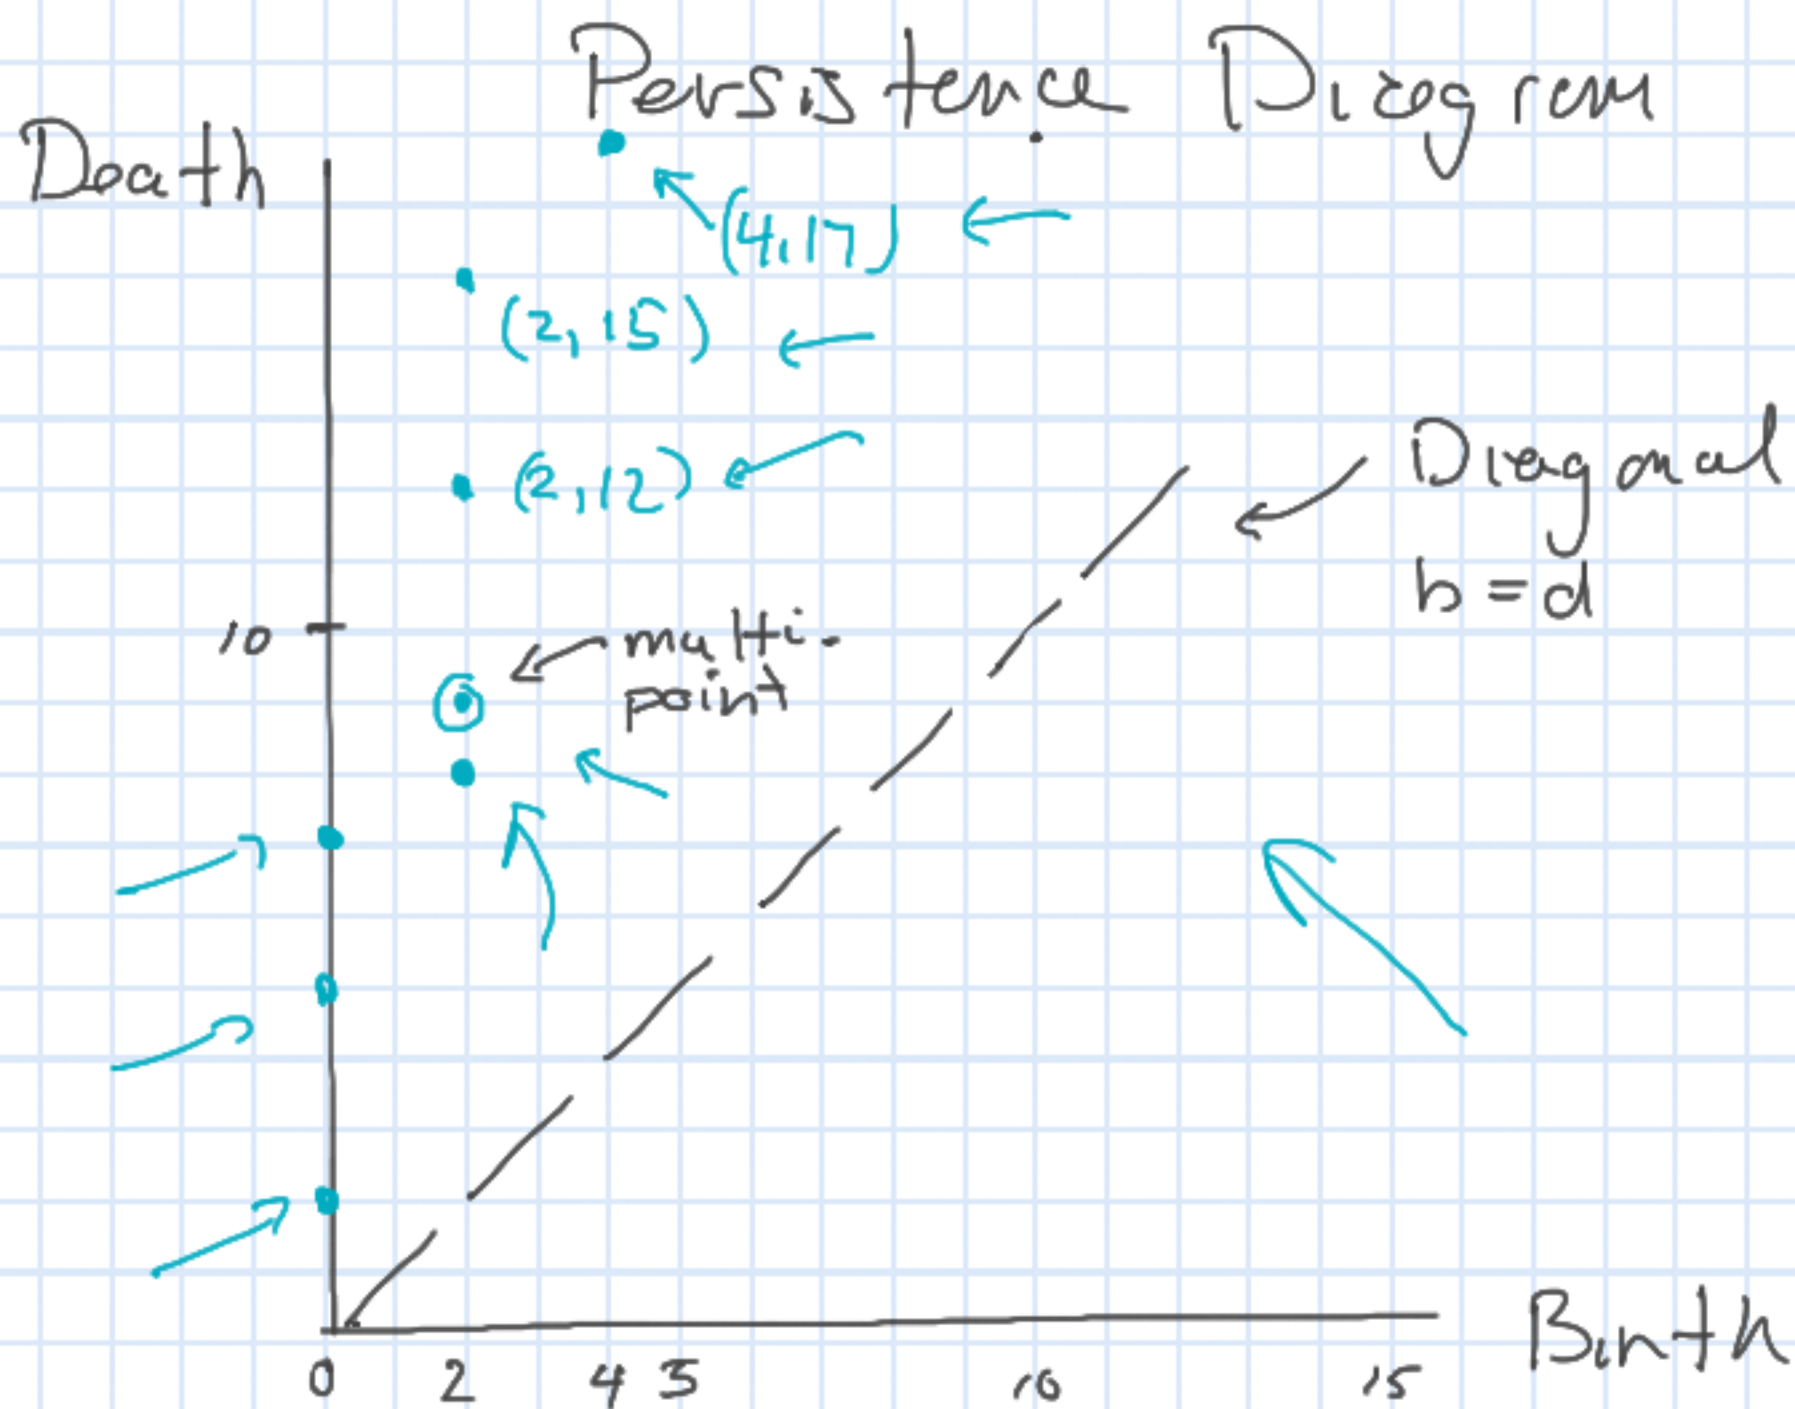 Persistence Diagram
Death
(4,17)
(2,15)
(2,12)
Diagonal
b = d
10
multi-
point
0 2 4 5 10 15
Birth